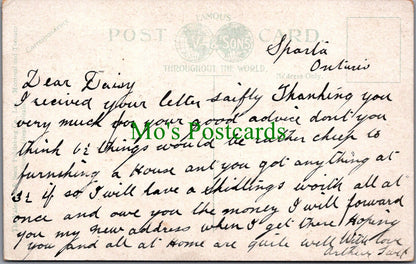 FAMOUS
POST CARD
& SONS
THROUGHOUT THE WORLD.
Sparta
Ontario
Dear Daisy
I recived your letter saifly Thanking you
very much for your good advice don't you
think 6½ things would be rather cheep to
furnishing a House ant you got anything at
3½ if so I will have a Shillings worth all at
once and owe you the money I will forward
you my new address when I get there Hoping
you and all at Home are quite well With love
Arthur
Mo's Postcards